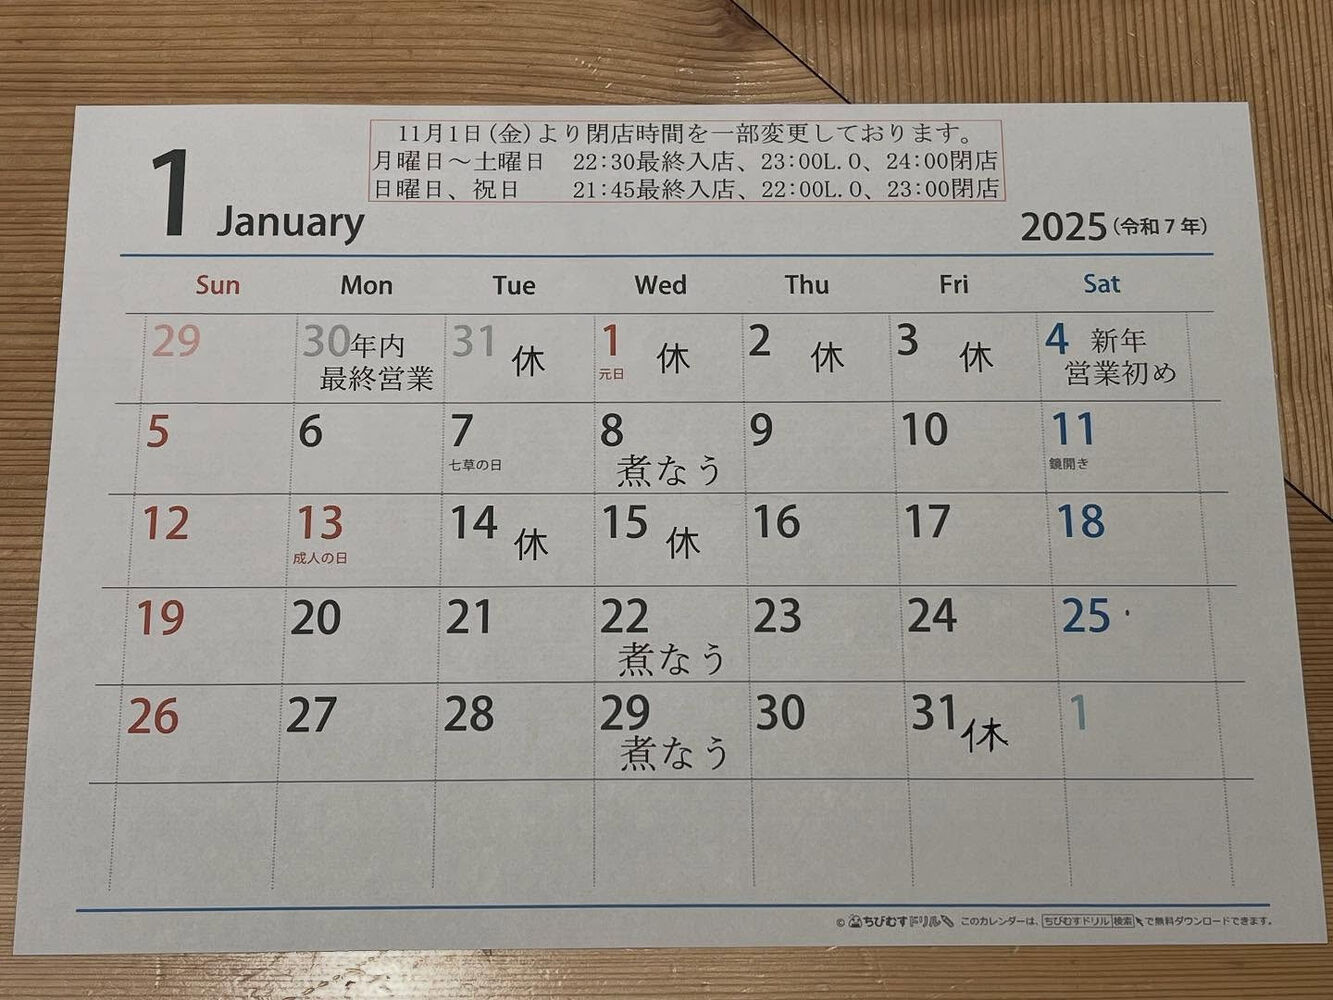 11月1日(金)より閉店時間を一部変更しております。
月曜日～土曜日 22:30最終入店、23:00L.O、24:00閉店
日曜日、祝日 21:45最終入店、22:00L.O、23:00閉店
1 January 2025(令和7年)
Sun Mon Tue Wed Thu Fri Sat
29 30年内 31 休 1 休 2 休 3 休 4 新年
最終営業 元日 営業初め
5 6 7 8 9 10 11
七草の日 煮なう 鏡開き
12 13 14 休 15 休 16 17 18
成人の日
19 20 21 22 23 24 25
煮なう
26 27 28 29 30 31休 1
煮なう
© ちびむすドリル このカレンダーは、ちびむすドリル 検索 で無料ダウンロードできます。